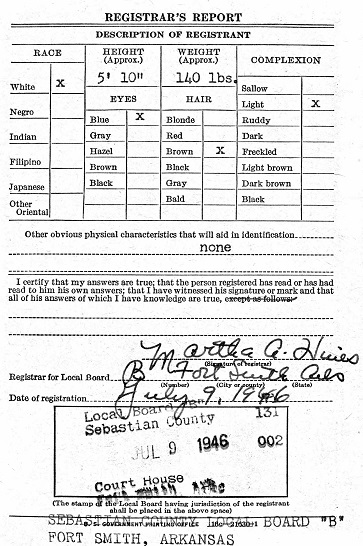 REGISTRAR'S REPORT
DESCRIPTION OF REGISTRANT
RACE
HEIGHT (Approx.)
WEIGHT (Approx.)
COMPLEXION
5' 10"
140 lbs.
White X
Negro
Indian
Filipino
Japanese
Other Oriental
EYES
Blue X
Gray
Hazel
Brown
Black
HAIR
Blonde
Red
Brown X
Black
Gray
Bald
Sallow
Light X
Ruddy
Dark
Freckled
Light brown
Dark brown
Black
Other obvious physical characteristics that will aid in identification
none
I certify that my answers are true; that the person registered has read or has had
read to him his own answers; that I have witnessed his signature or mark and that
all of his answers of which I have knowledge are true, except as follows:
Martha A. Hines
(Signature of registrar)
Registrar for Local Board B Fort Smith Ark
(Number) (City or county) (State)
Date of registration July 9, 1946
Local Board 131
Sebastian County
JUL 9 1946 002
Court House
(The stamp of the Local Board having jurisdiction of the registrant
shall be placed in the above space)
U. S. GOVERNMENT PRINTING OFFICE
SEBASTIAN COUNTY LOCAL BOARD "B"
FORT SMITH, ARKANSAS